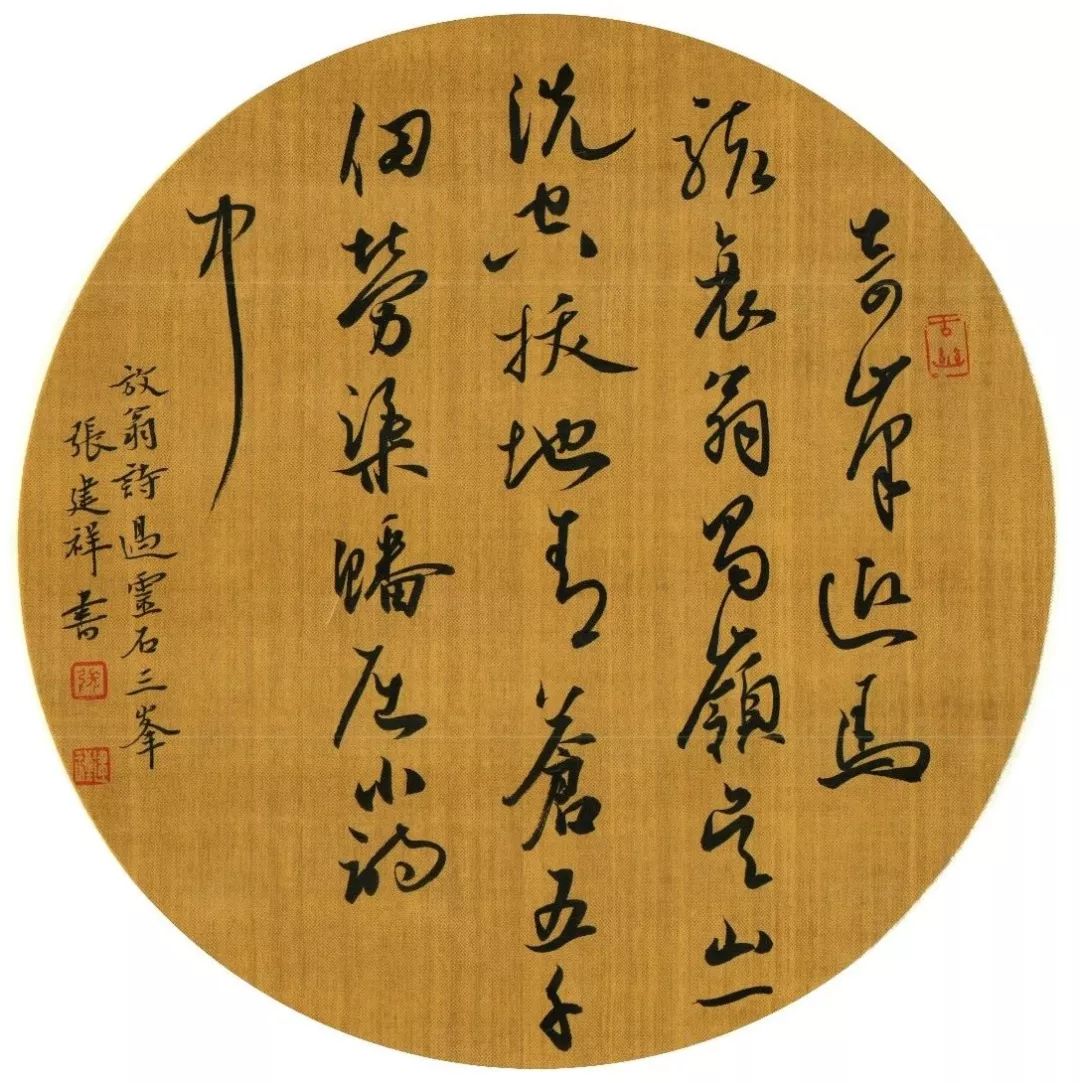 奇峯迎馬
駭衰翁蜀嶺吴山一
洗空拔地青蒼五千
仞勞渠蟠屈小詩
中
放翁詩過靈石三峯
張建祥書